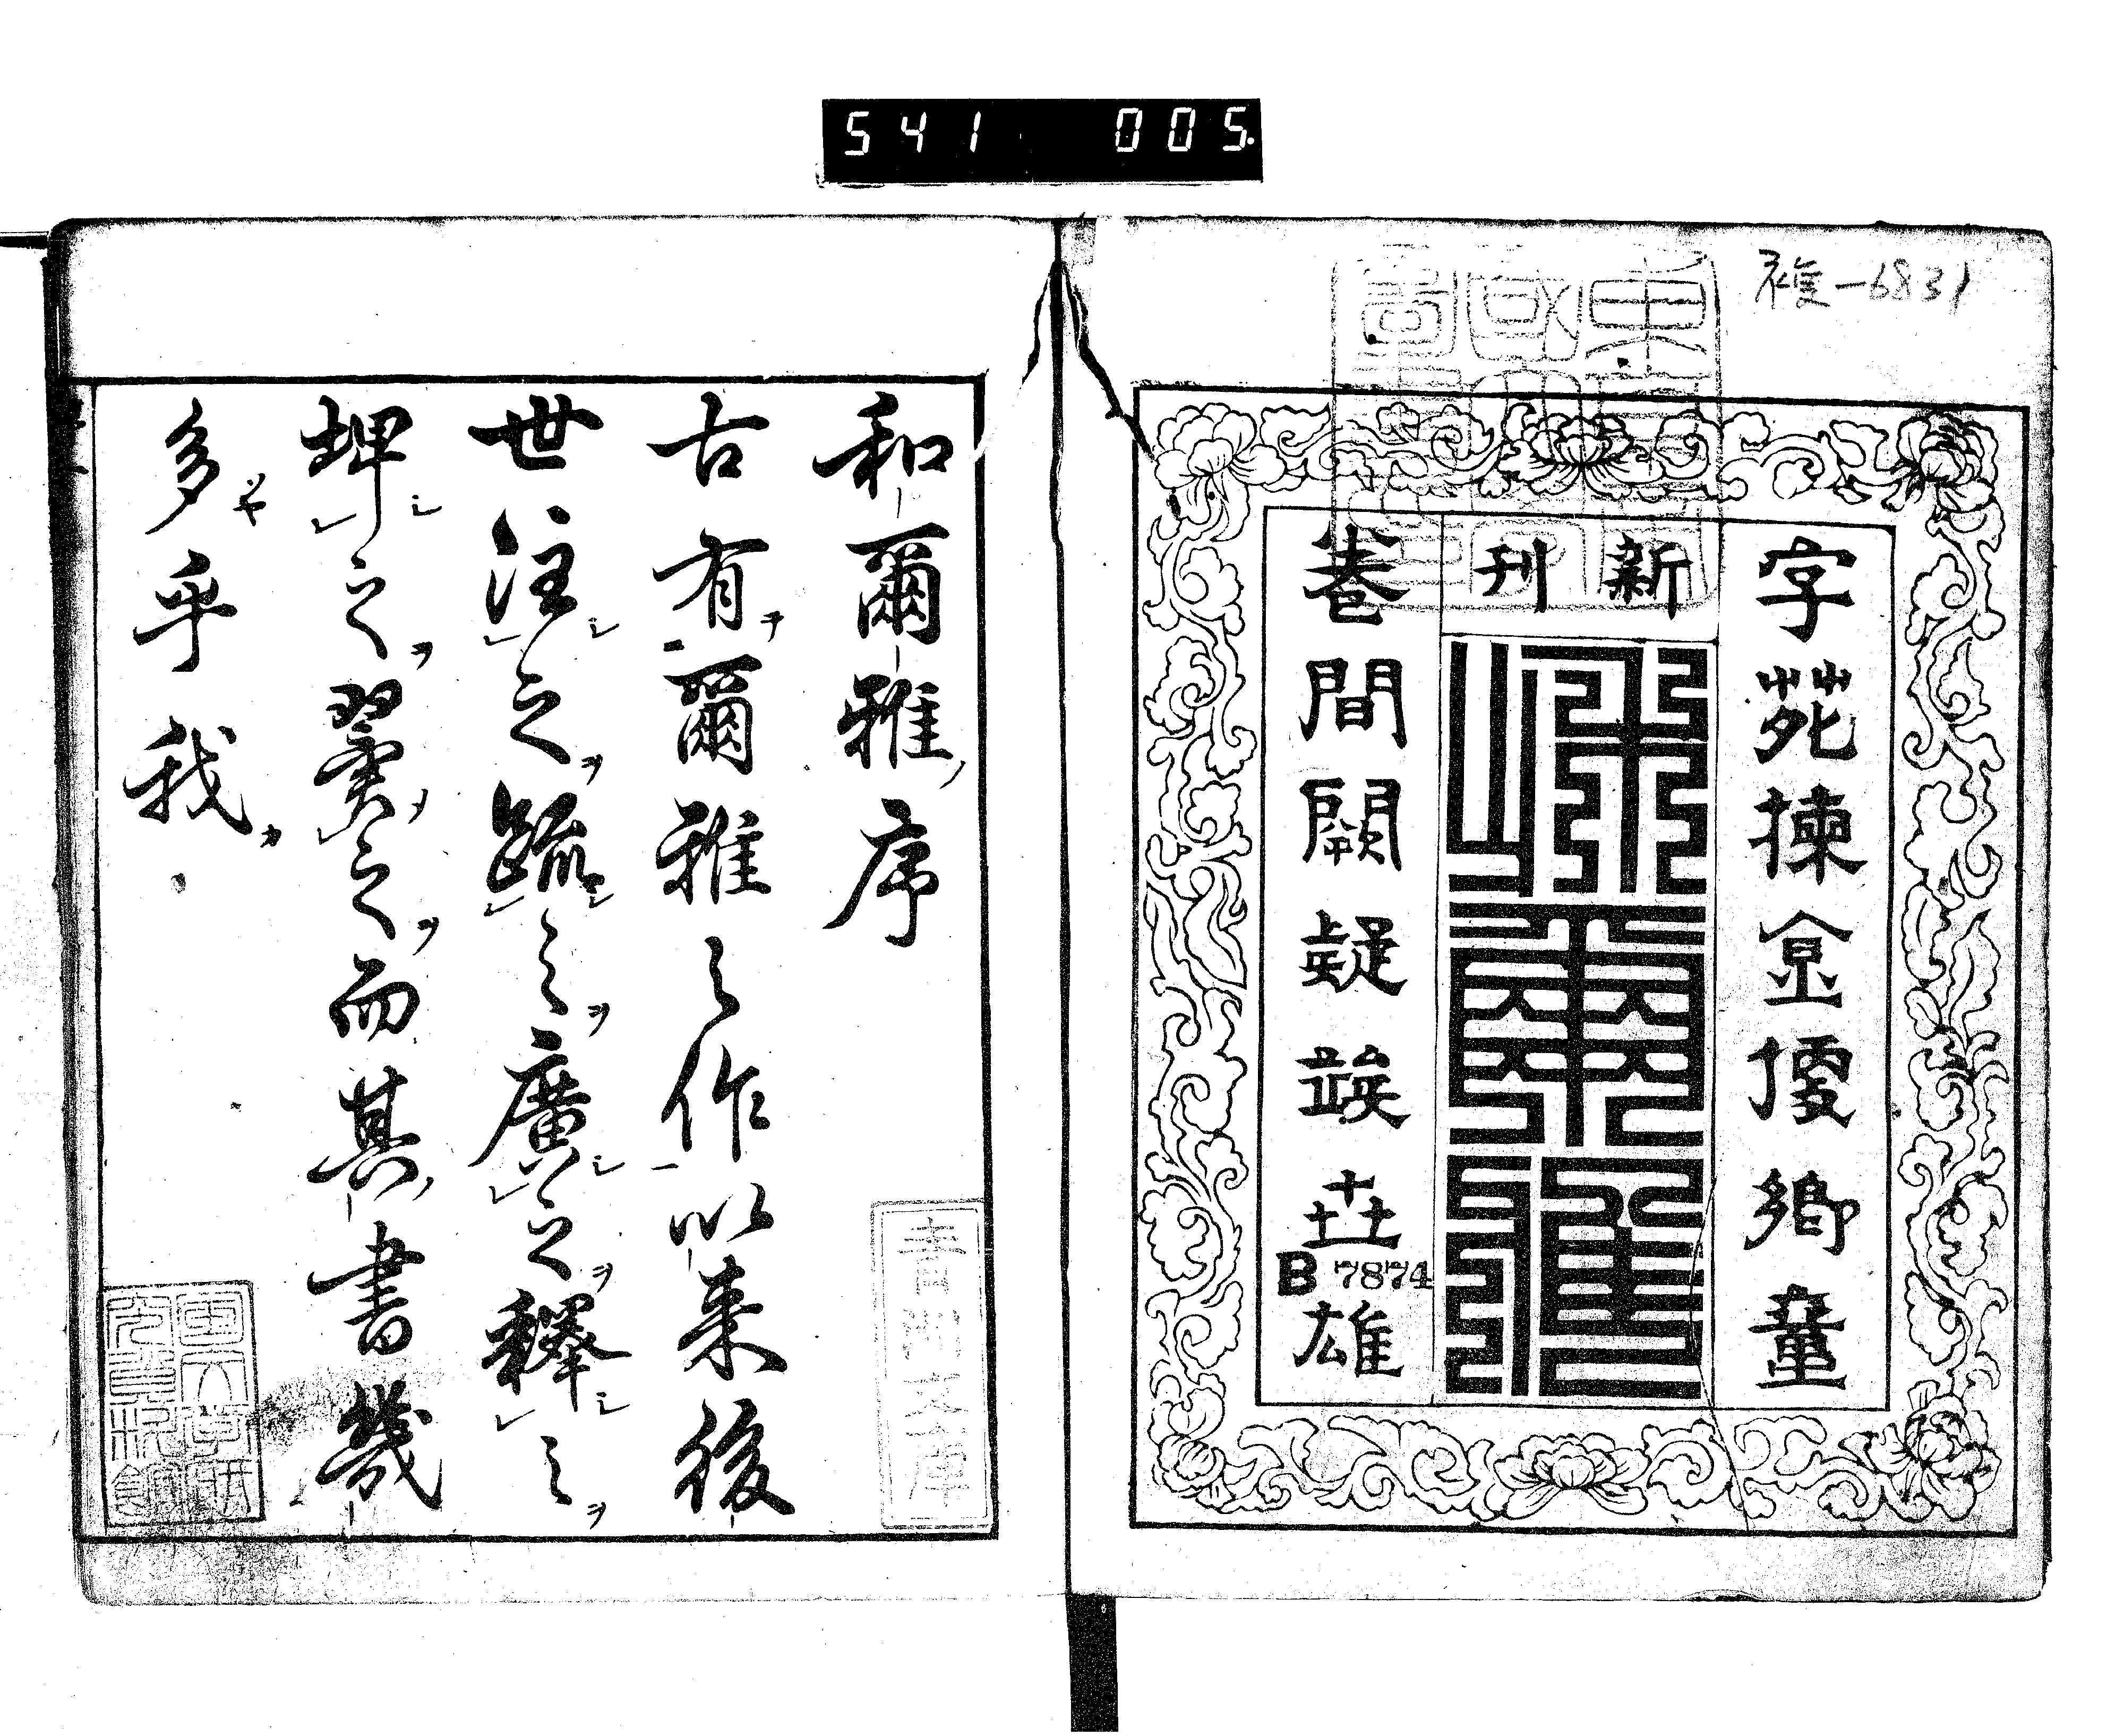 541 005
雑-6831
字苑揀金郷童
新刊
和爾雅
巷間闕疑竢世雄
B 7874
和爾雅序
古有爾雅之作以来後
世注之疏之廣之釋之
埤之翼之而其書幾
多乎哉
青洲文庫